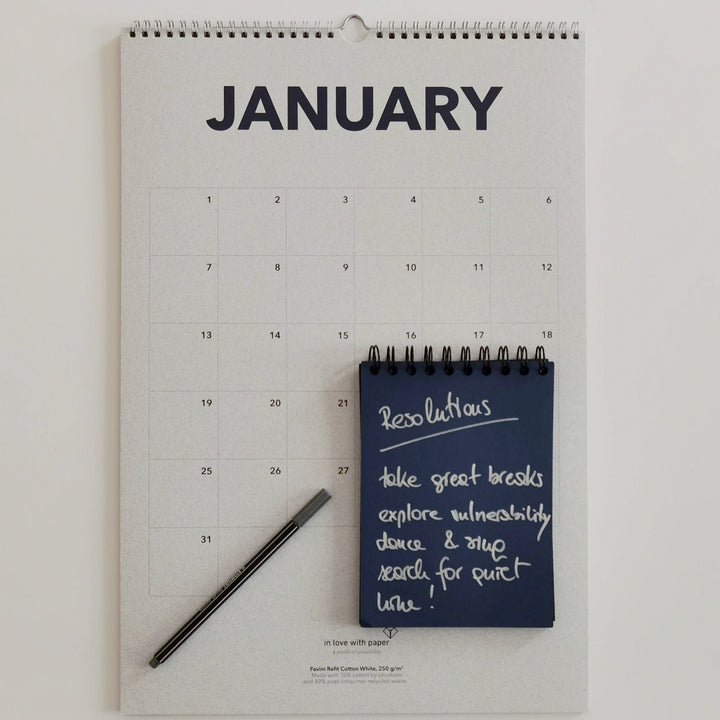 JANUARY
1 2 3 4 5 6
7 8 9 10 11 12
13 14 15 16 17 18
19 20 21
25 26 27
31
Resolutions
take great breaks
explore vulnerability
dance & sing
search for quiet
time!
in love with paper
a world of possibility
Favini Refit Cotton White, 250 g/m²
Made with 15% cotton by products
and 40% post-consumer recycled waste